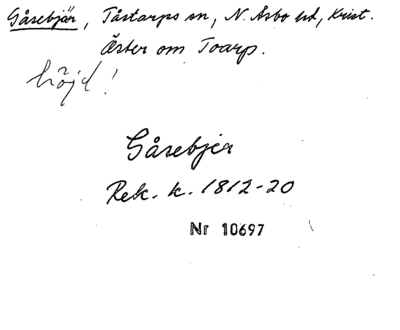 Gåsebjär, Tåstarps sn, N. Åsbo hd, Krist.
Öster om Toarp.
höjd!
Gåsebjer
Rek. k. 1812-20
Nr 10697